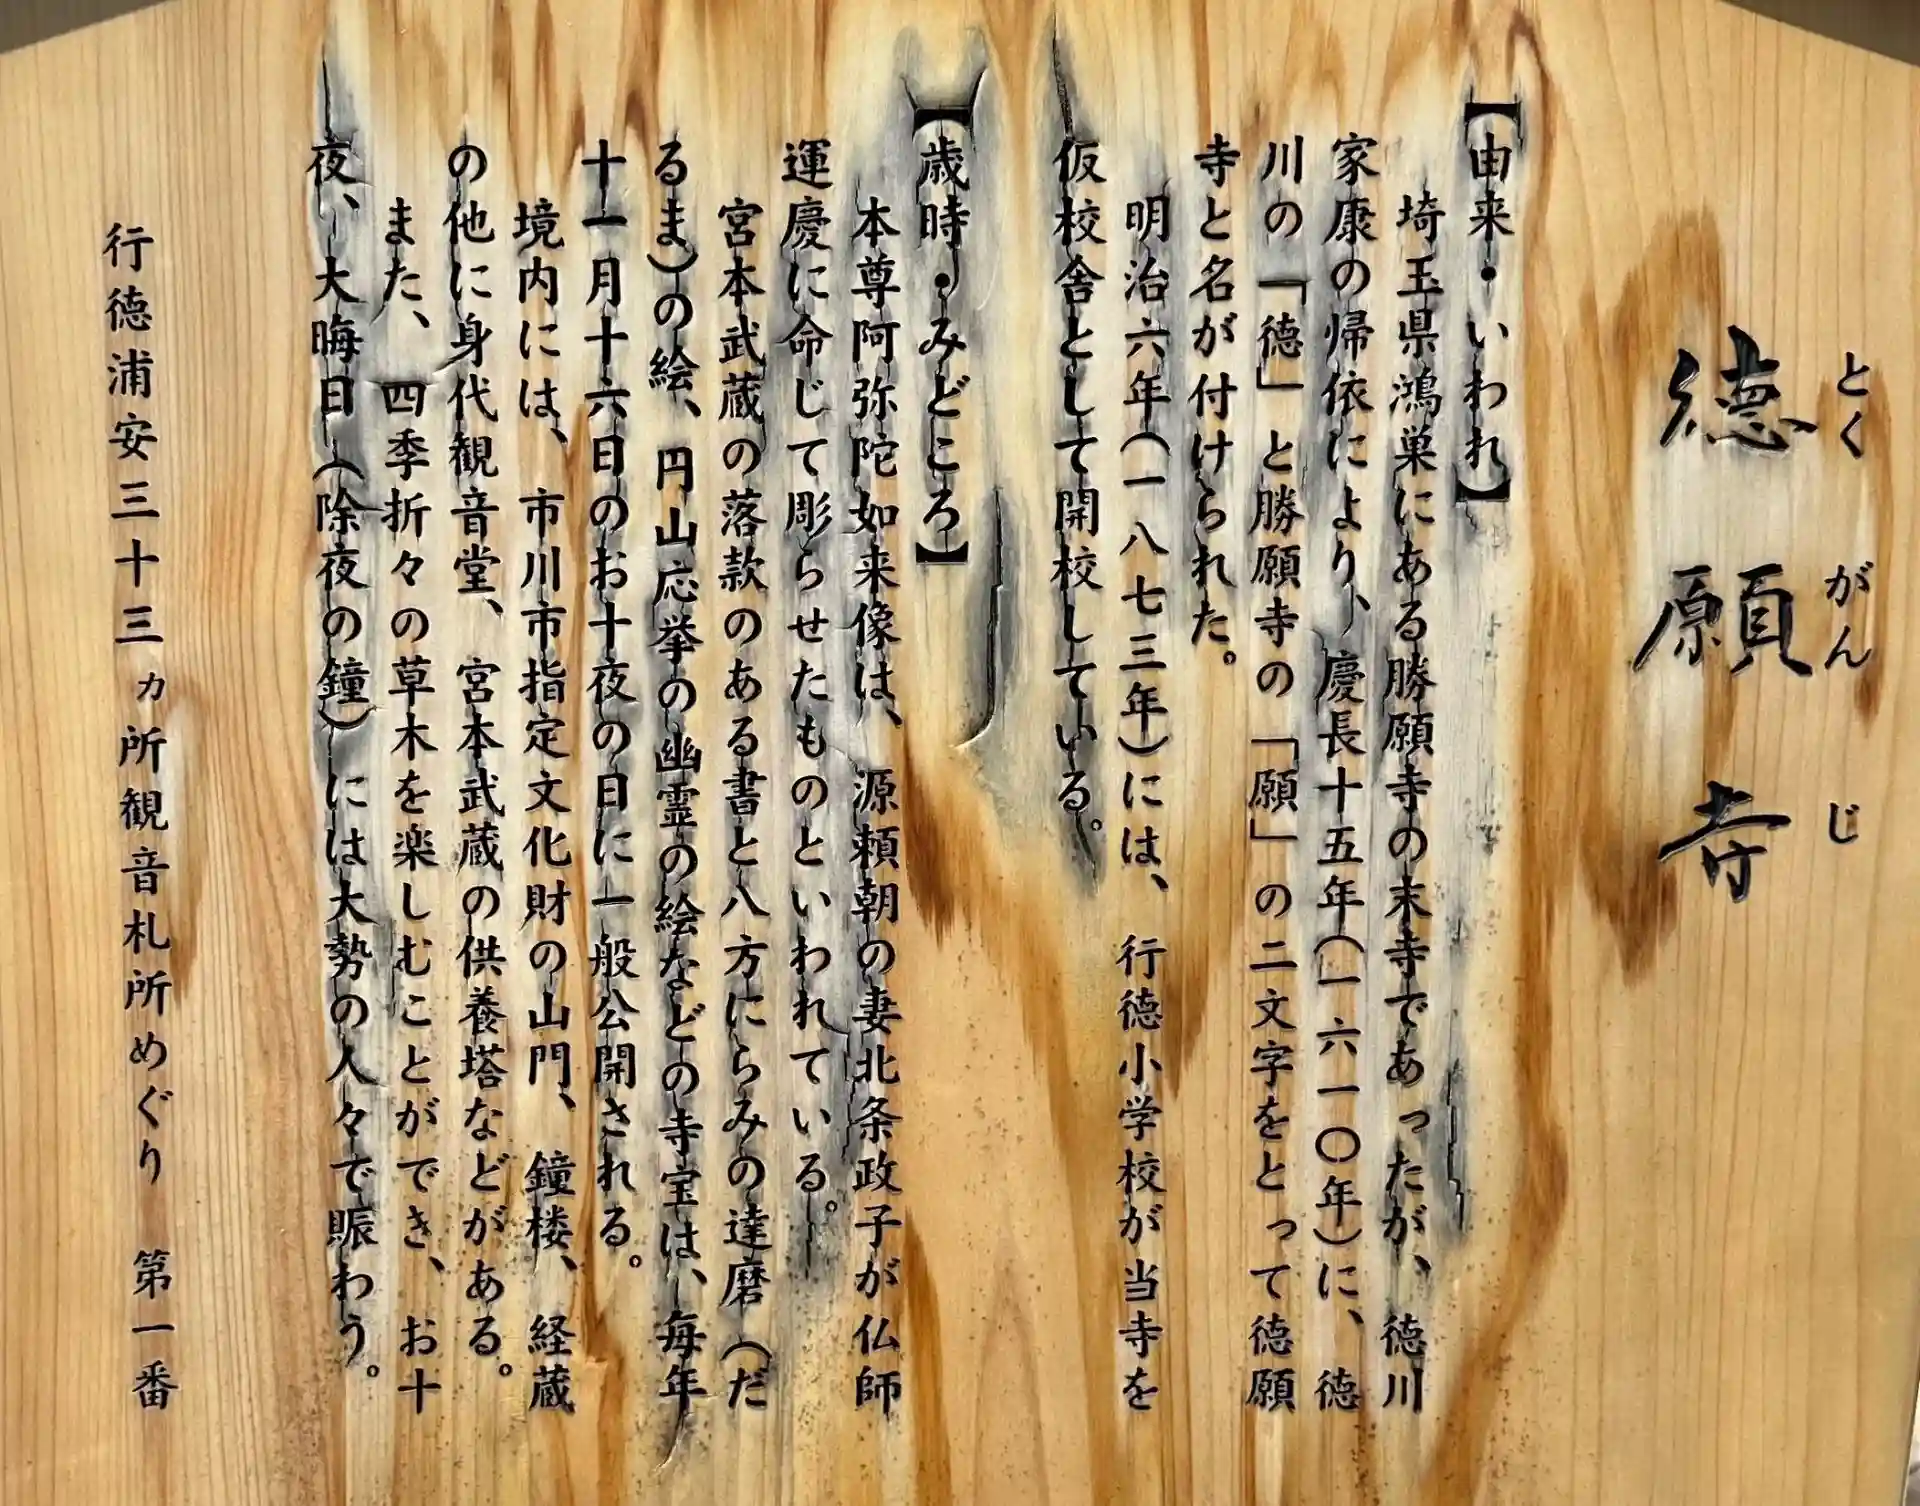 とくがんじ
徳願寺
【由来・いわれ】
埼玉県鴻巣にある勝願寺の末寺であったが、徳川
家康の帰依により、慶長十五年(一六一〇年)に、徳
川の「徳」と勝願寺の「願」の二文字をとって徳願
寺と名が付けられた。
明治六年(一八七三年)には、行徳小学校が当寺を
仮校舎として開校している。
【歳時・みどころ】
本尊阿弥陀如来像は、源頼朝の妻北条政子が仏師
運慶に命じて彫らせたものといわれている。
宮本武蔵の落款のある書と八方にらみの達磨(だ
るま)の絵、円山応挙の幽霊の絵などの寺宝は、毎年
十一月十六日のお十夜の日に一般公開される。
境内には、市川市指定文化財の山門、鐘楼、経蔵
の他に身代観音堂、宮本武蔵の供養塔などがある。
また、四季折々の草木を楽しむことができ、お十
夜、大晦日(除夜の鐘)には大勢の人々で賑わう。
行徳浦安三十三ヵ所観音札所めぐり 第一番